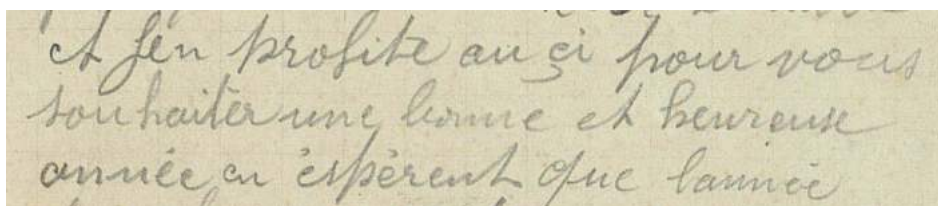 et jen profite au çi pour vous
souhaiter une bonne et heureuse
année en éspèrent que lannnée